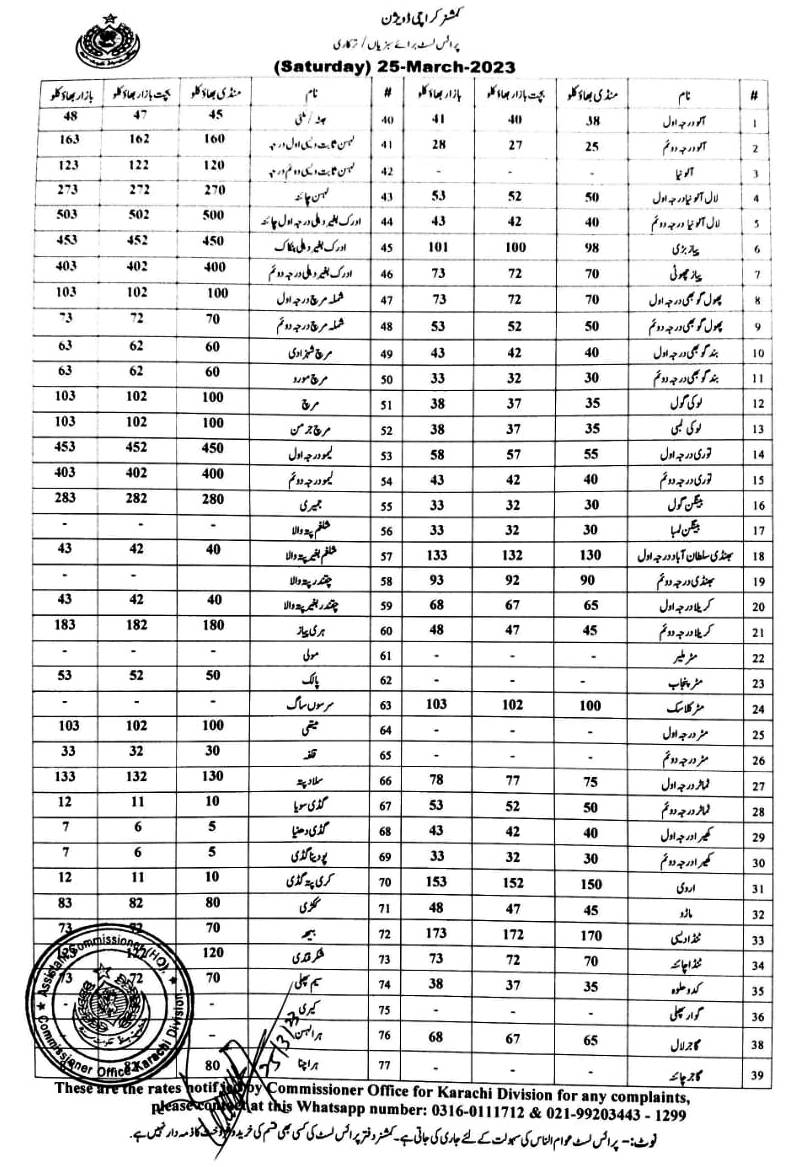 کمشنر کراچی ڈویژن
پرائس لسٹ برائے سبزیاں / ترکاری
(Saturday) 25-March-2023
# نام منڈی بھاؤ کلو بچت بازار بھاؤ کلو بازار بھاؤ کلو # نام منڈی بھاؤ کلو بچت بازار بھاؤ کلو بازار بھاؤ کلو
1 آلو درجہ اول 38 40 41 40 45 47 48
2 آلو درجہ دوئم 25 27 28 41 لہسن ثابت دیسی اول درجہ 160 162 163
3 آلو نیا - - - 42 لہسن ثابت دیسی دوئم درجہ 120 122 123
4 لال آلو نیا درجہ اول 50 52 53 43 لہسن چائنہ 270 272 273
5 لال آلو نیا درجہ دوئم 40 42 43 44 ادرک بغیر دھلی درجہ اول چائنہ 500 502 503
6 پیاز بڑی 98 100 101 45 ادرک بغیر دھلی بنکاک 450 452 453
7 پیاز چھوٹی 70 72 73 46 ادرک بغیر دھلی درجہ دوئم 400 402 403
8 پھول گوبھی درجہ اول 70 72 73 47 شملہ مرچ درجہ اول 100 102 103
9 پھول گوبھی درجہ دوئم 50 52 53 48 شملہ مرچ درجہ دوئم 70 72 73
10 بند گوبھی درجہ اول 40 42 43 49 مرچ شہزادی 60 62 63
11 بند گوبھی درجہ دوئم 30 32 33 50 مرچ مورو 60 62 63
12 لوکی گول 35 37 38 51 مرچ 100 102 103
13 لوکی لمبی 35 37 38 52 مرچ جرمن 100 102 103
14 توری درجہ اول 55 57 58 53 لیمو درجہ اول 450 452 453
15 توری درجہ دوئم 40 42 43 54 لیمو درجہ دوئم 400 402 403
16 بینگن گول 30 32 33 55 جمیری 280 282 283
17 بینگن لمبا 30 32 33 56 شلغم پتہ والا - - -
18 بھنڈی سلطان آباد درجہ اول 130 132 133 57 شلغم بغیر پتہ والا 40 42 43
19 بھنڈی درجہ دوئم 90 92 93 58 چقندر پتہ والا - -
20 کریلا درجہ اول 65 67 68 59 چقندر بغیر پتہ والا 40 42 43
21 کریلا درجہ دوئم 45 47 48 60 ہری پیاز 180 182 183
22 مٹر ملیر - - - 61 مولی - - -
23 مٹر پنجاب - - - 62 پالک 50 52 53
24 مٹر کلاسک 100 102 103 63 سرسوں ساگ - - -
25 مٹر درجہ اول - - - 64 میتھی 100 102 103
26 مٹر درجہ دوئم - - - 65 قلفہ 30 32 33
27 ٹماٹر درجہ اول 75 77 78 66 سلاد پتہ 130 132 133
28 ٹماٹر درجہ دوئم 50 52 53 67 گڈی سویا 10 11 12
29 کھیرا درجہ اول 40 42 43 68 گڈی دھنیا 5 6 7
30 کھیرا درجہ دوئم 30 32 33 69 پودینا گڈی 5 6 7
31 اروی 150 152 153 70 کری پتہ گڈی 10 11 12
32 ماڑو 45 47 48 71 ککڑی 80 82 83
33 ٹنڈا دیسی 170 172 173 72 بیھ 70 72 73
34 ٹنڈا چائنہ 70 72 73 73 شکر قندی 120 122 123
35 کدو حلوہ 35 37 38 74 سیم پھلی 70 72 73
36 گوار پھلی - - - 75 کیری - -
38 گاجر لال 65 67 68 76 ہرا لہسن -
39 گاجر چائنہ 77 ہرا چنا 80 82
Assistant Commissioner (HQ).
Commissioner Office Karachi Division
25/3/23
These are the rates notified by Commissioner Office for Karachi Division for any complaints,
please contact at this Whatsapp number: 0316-0111712 & 021-99203443 - 1299
نوٹ:- پرائس لسٹ عوام الناس کی سہولت کے لئے جاری کی جاتی ہے۔ کمشنر دفتر پرائس لسٹ کی کسی بھی قسم کی خرید و فروخت کا ذمہ دار نہیں ہے۔